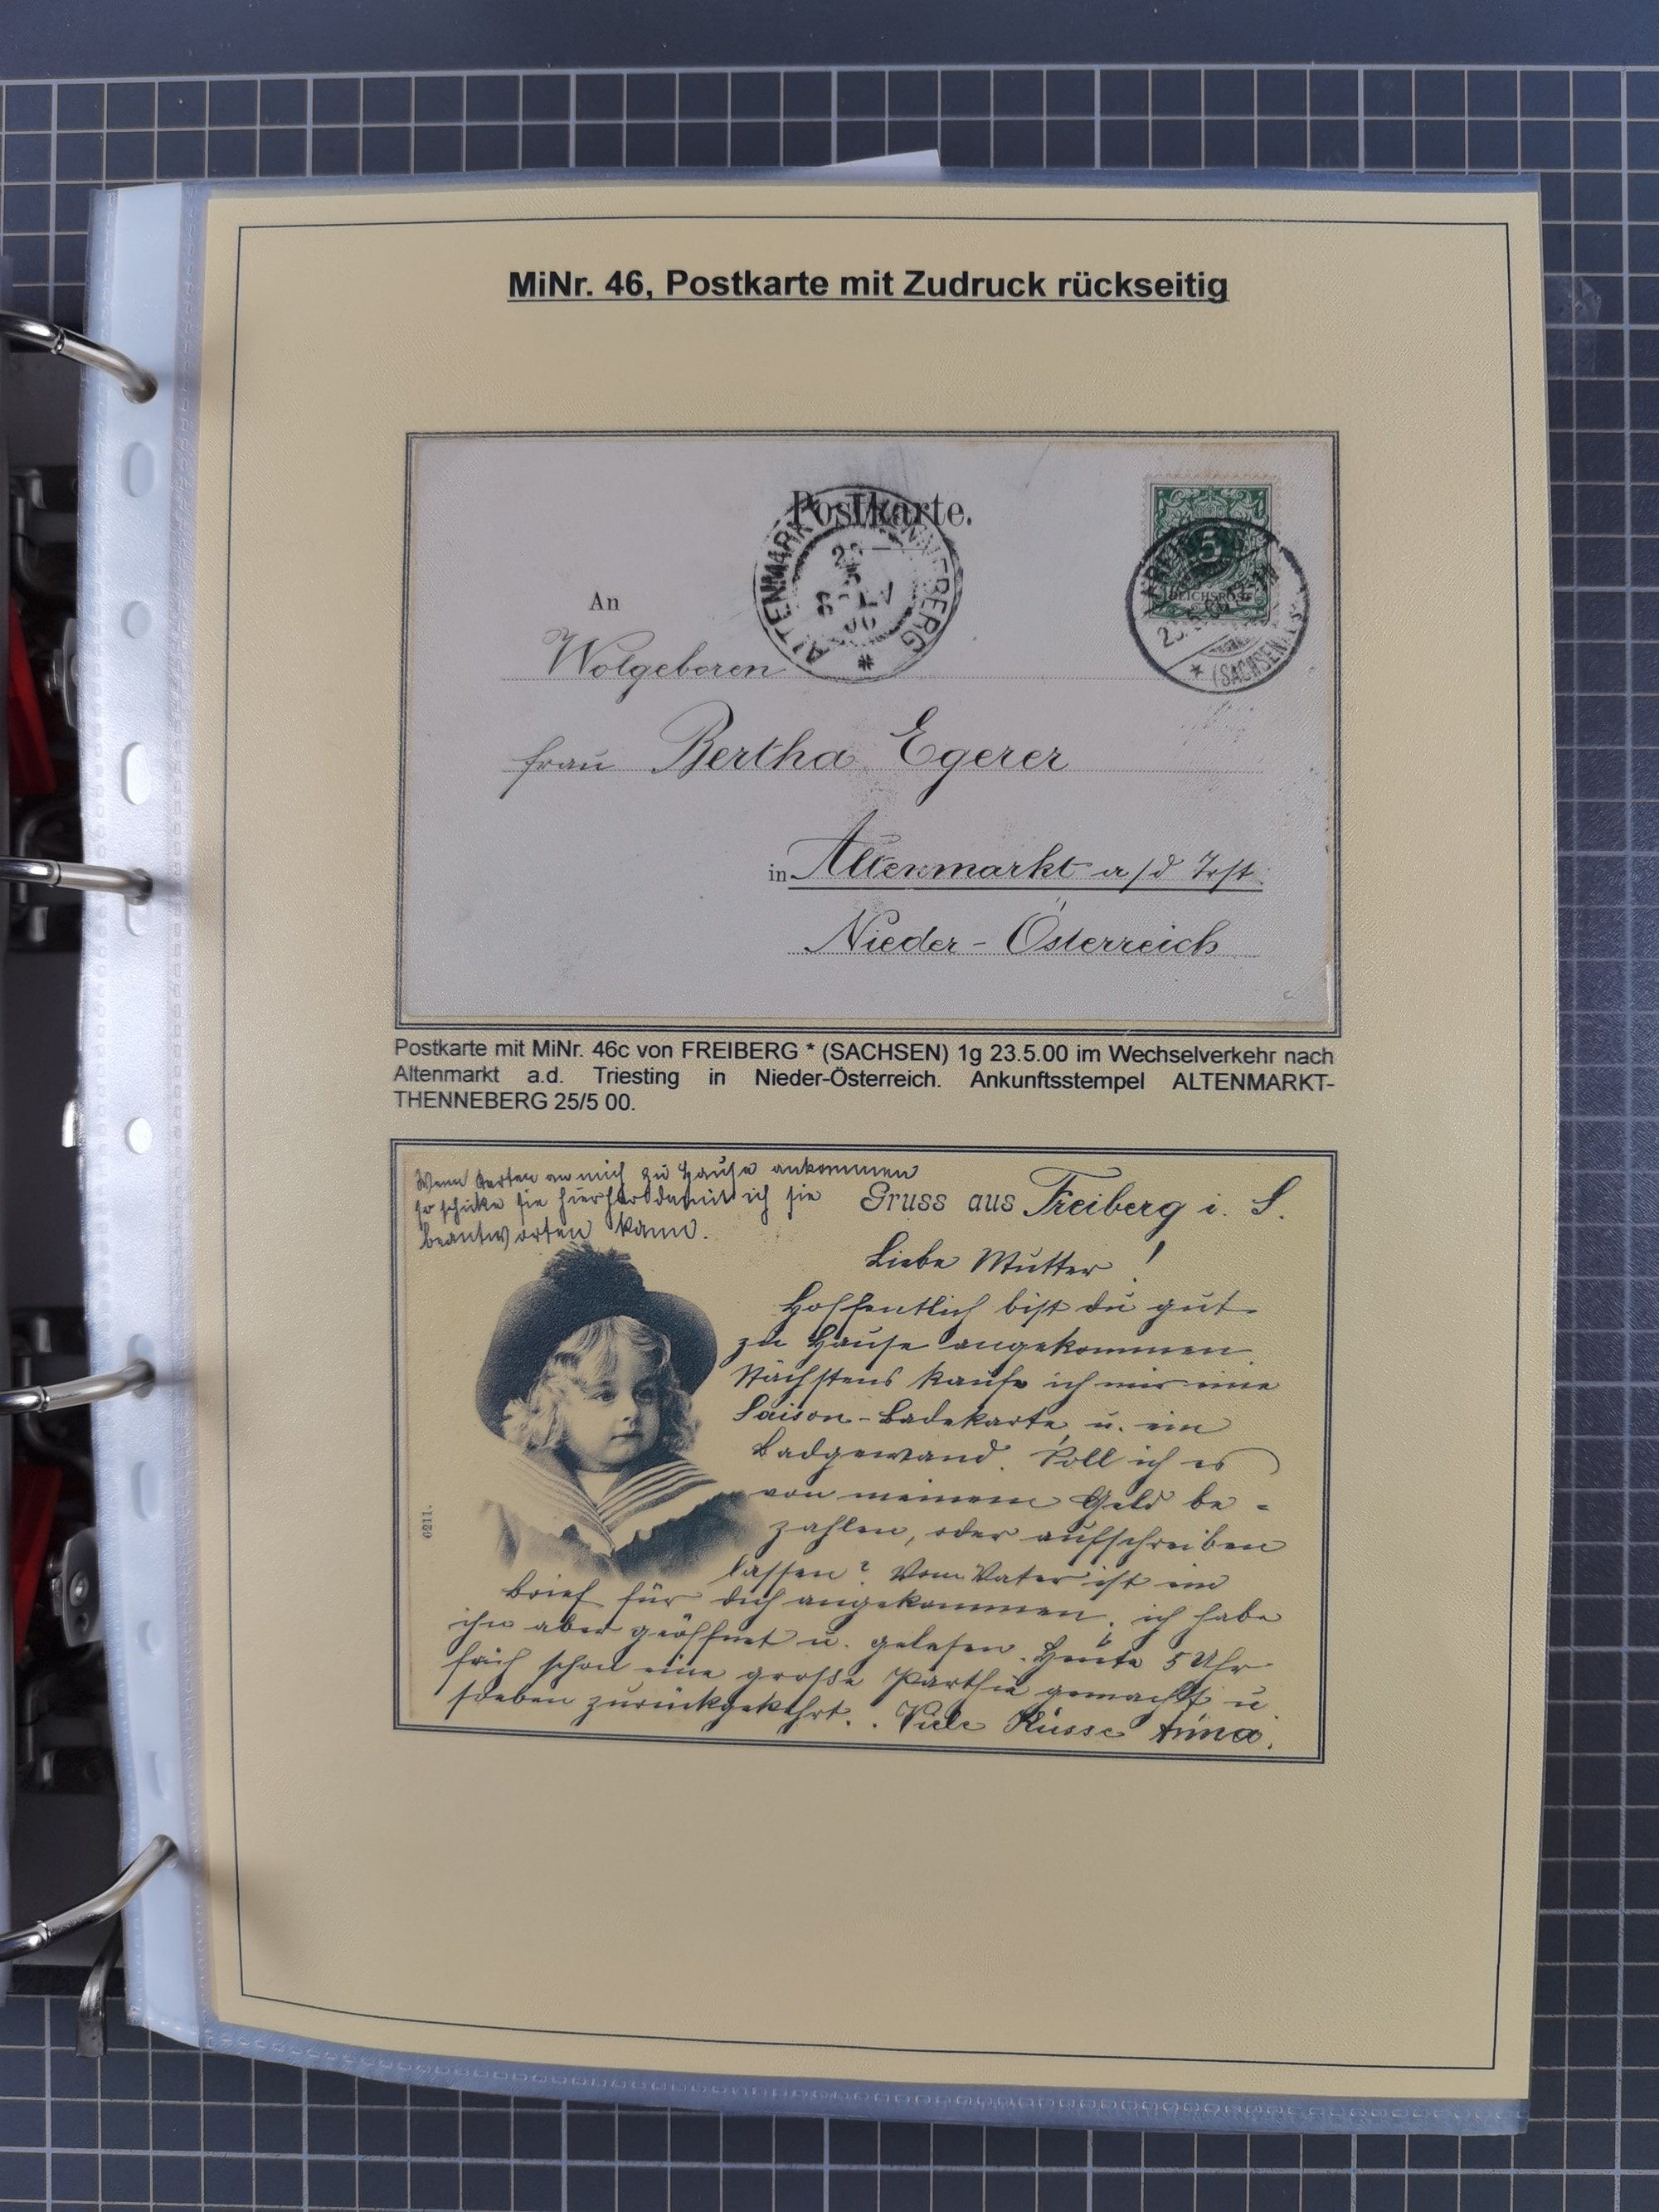 MiNr. 46, Postkarte mit Zudruck rückseitig
Postkarte.
ALTENMARKT THENNEBERG
25
5
00
*
5
REICHSPOST
FREIBERG
* (SACHSEN)
An
Wolgeboren
Frau Bertha Egerer
in Altenmarkt a/d Trst.
Nieder-Österreich
Postkarte mit MiNr. 46c von FREIBERG * (SACHSEN) 1g 23.5.00 im Wechselverkehr nach
Altenmarkt a.d. Triesting in Nieder-Österreich. Ankunftsstempel ALTENMARKT-
THENNEBERG 25/5 00.
Wenn Karten an mich zu Hause ankommen
so schicke sie hierher damit ich sie
beantworten kann.
Gruss aus Freiberg i. S.
Liebe Mutter!
Hoffentlich bist du gut
zu Hause angekommen.
Nächstens kaufe ich mir eine
Saison-Badekarte u. ein
Badgewand. Soll ich es
von meinem Geld be-
zahlen, oder aufschreiben
lassen? Vom Vater ist ein
Brief für dich angekommen, ich habe
ihn aber geöffnet u. gelesen. Heute 5 Uhr
früh schon eine große Parthie gemacht u
soeben zurückgekehrt. Viele Küsse Anna.
6211.